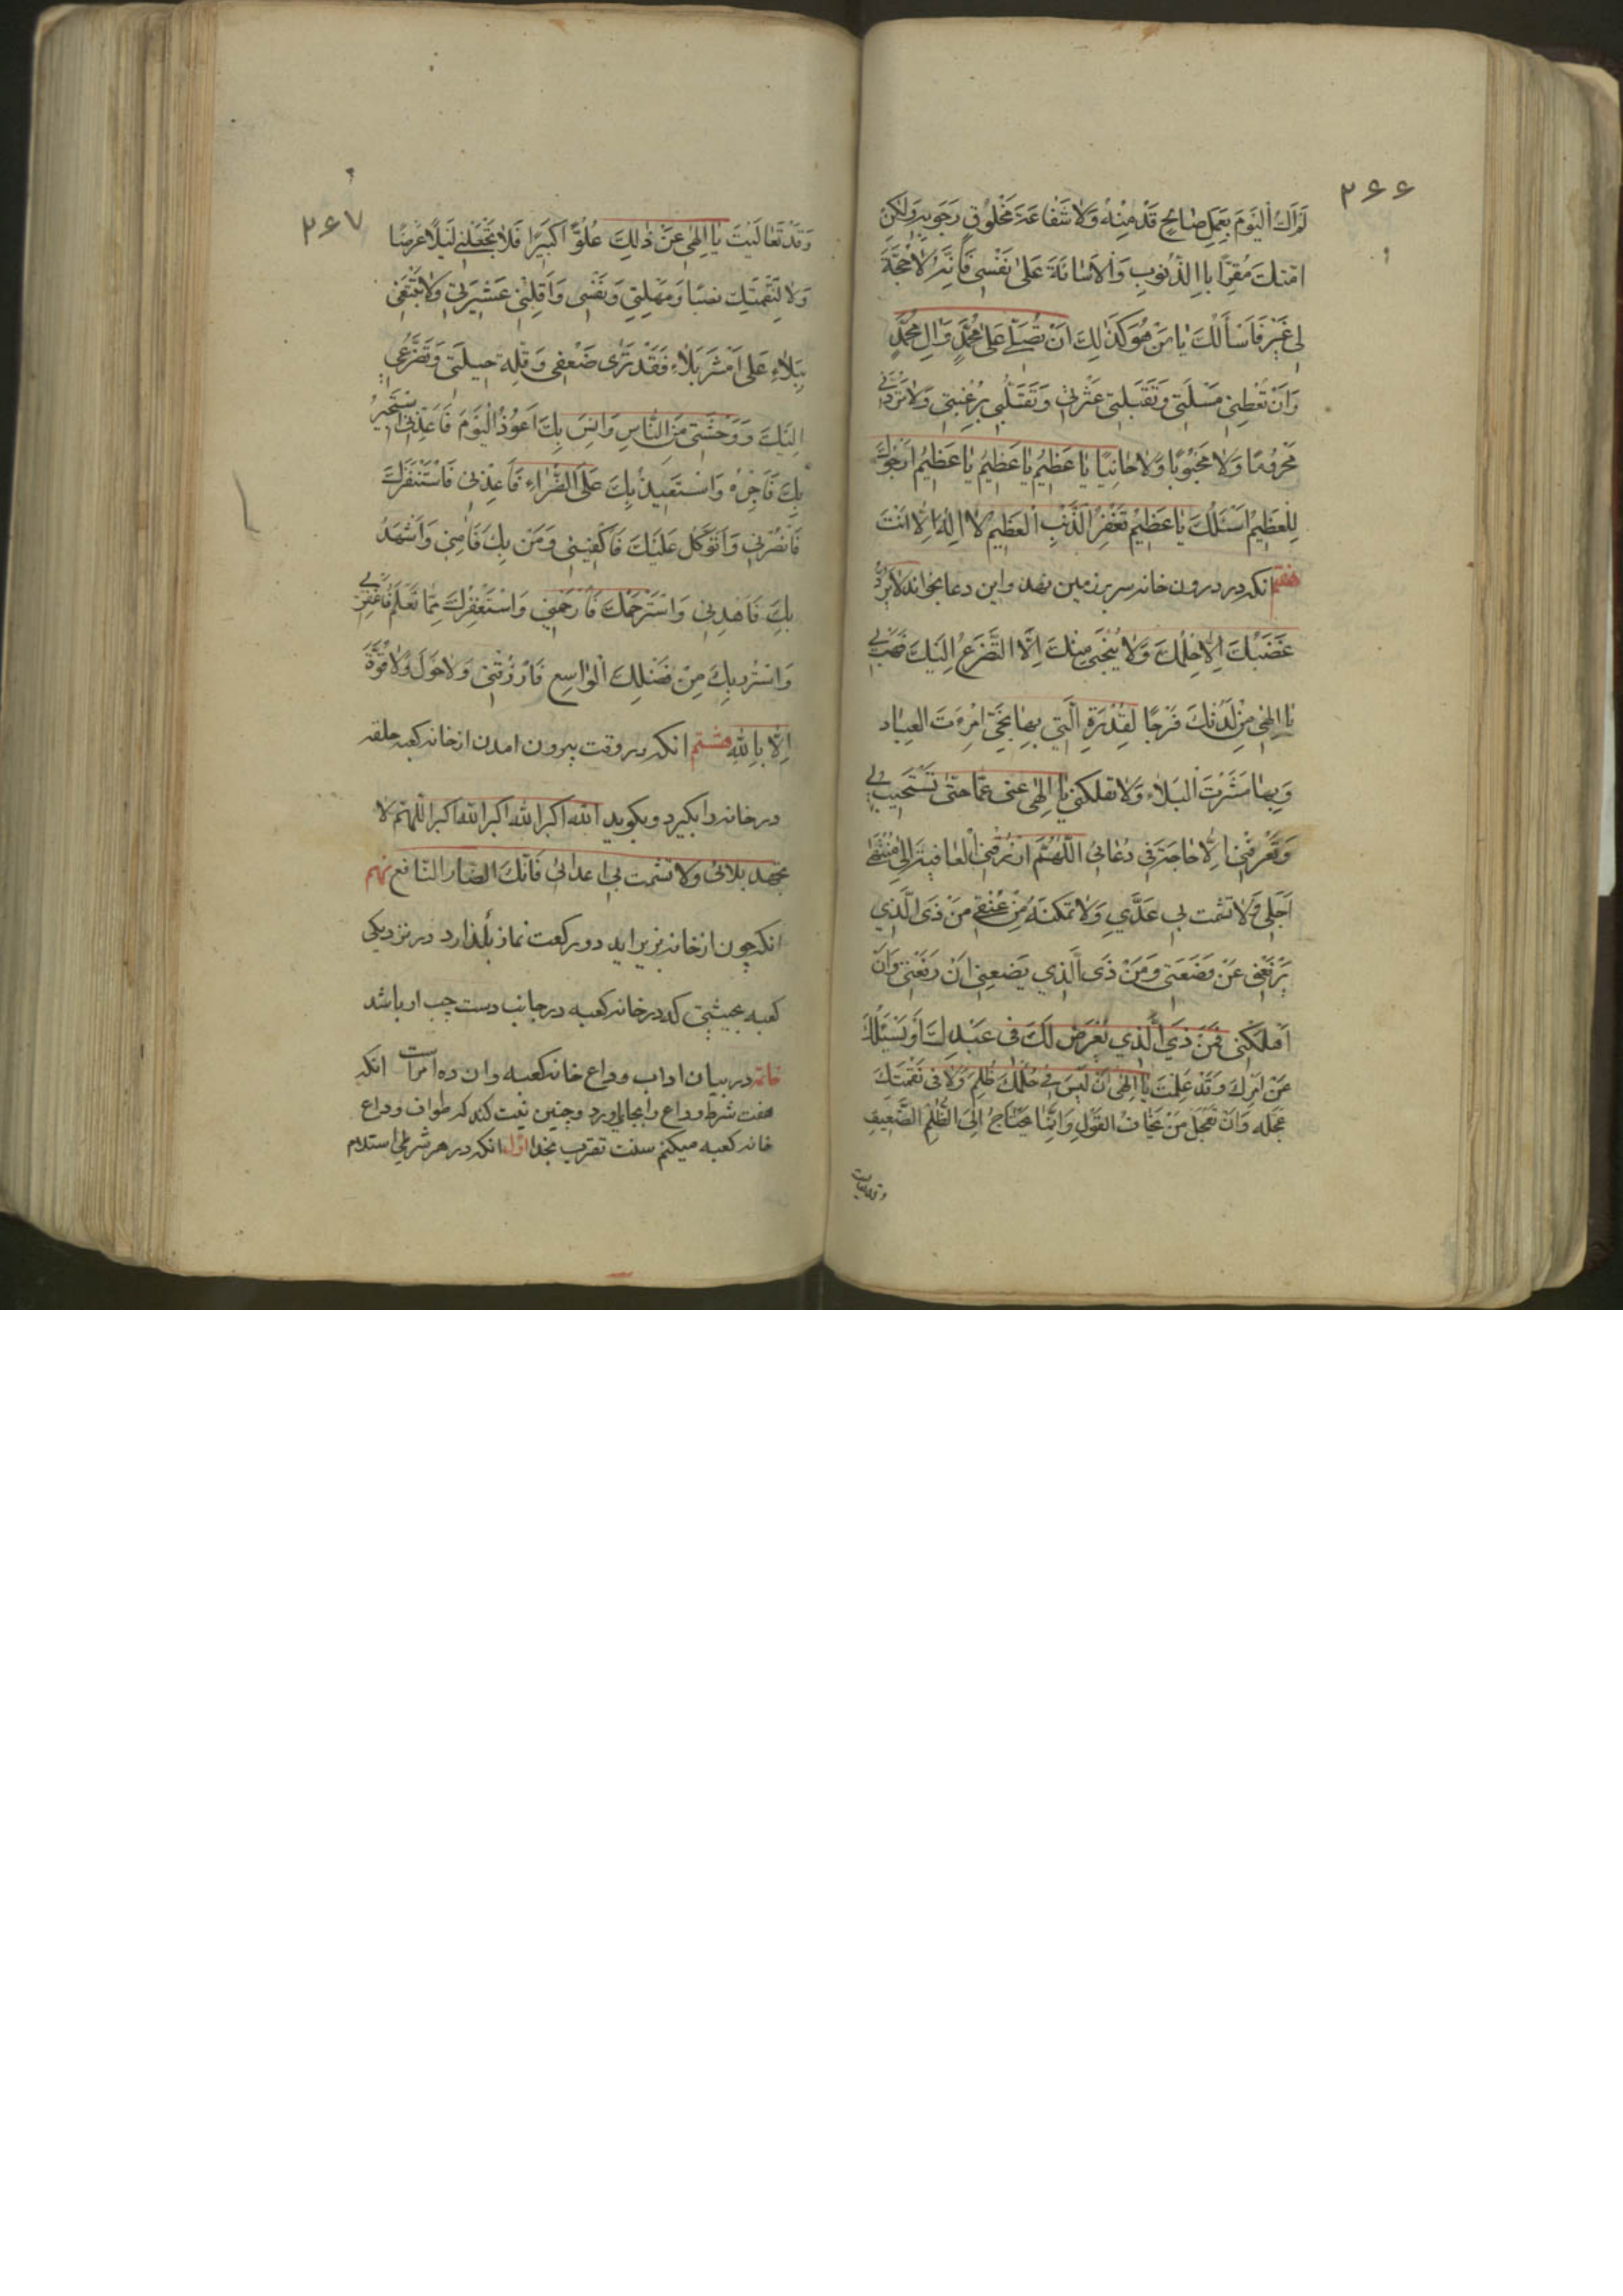 ۲۶۶
لَمْ اٰتِكَ اَلْيَوْمَ بِعَمَلٍ صَالِحٍ قَدَّمْتُهُ وَلَا شَفَاعَةَ مَخْلُوْقٍ رَجَوْتُهُ وَلٰكِنْ
مُقِرًّا بِاالذُّنُوبِ وَالْاَسَائَةَ عَلٰى نَفْسِى فَاِنَّهُ لَا حُجَّةَ
لِى فَاَسْاَلُكَ يَا مَنْ هُوَ كَذٰلِكَ اَنْ تُصَلِّىَ عَلٰى مُحَمَّدٍ وَاٰلِ مُحَمَّدٍ
وَاَنْ تُعْطِيَنِى مَسْئَلَتِى وَتُقِيلَنِى عَثْرَتِى وَتَقْلِبَنِى بِرَغْبَتِى وَلَا تَرُدَّنِى
مَحْرُومًا وَلَا وَلَا خَائِبًا يَا عَظِيْمُ يَا عَظِيْمُ يَا عَظِيْمُ اَرْجُوْكَ
لِلْعَظِيْمِ اَسْئَلُكَ يَا عَظِيْمُ تَغْفِرُ الذَّنْبِ الْعَظِيْمِ لَا اِلٰهَ اِلَّا اَنْتَ
هفتم انكه در درون خانه سر بر زمين نهد واين دعا بخواند لَا يَرُدُّ
غَضَبَكَ اِلَّا حِلْمُكَ وَلَا يُنْجِى مِنْكَ اِلَّا التَّضَرُّعُ اِلَيْكَ فَهَبْ لِى
يَا اِلٰهِى مِنْ لَدُنْكَ فَرَجًا الَّتِى بِهَا العِبَاد
وَبِهَا البَلَاءِ وَلَا تُهْلِكْنِى يَا اِلٰهِى حَتّٰى تَسْتَجِيبَ لِى
وَتُعَرِّفَنِى دُعَائِى اَللّٰهُمَّ ارْزُقْنِى الْعَافِيَةَ اِلٰى مُنْتَهٰى
اَجَلِى وَلَا تشمت بِى عَدُوِّى وَلَا تُمَكِّنْهُ مِنْ عُنُقِى مَنْ ذَى الَّذِى
يَرْفَعُنِى وَمَنْ ذَى الَّذِى يَضَعُنِى اِنْ رَفَعْتَنِى وَاِنْ
اَهْلَكْتَنِى فَمَنْ ذَى الَّذِى يُعْرِضُ لَكَ فِى عَبْدِكَ اَوْ يَسْئَلُكَ
عَنْ اَمْرِكَ وَقَدْ عَلِمْتُ يَا اِلٰهِى اَنْ لَيْسَ فِى حُكْمِكَ ظُلْمٌ وَلَا فِى نَقْمَتِكَ
عَجَلَه يَخَافُ الفَوْتَ وَاِنَّمَا يَحْتَاجُ اِلَى الظُّلْمِ الضَّعِيْفُ
وقد تعاليت
۲۶۷
وَقَدْ تَعَالَيْتَ يَا اِلٰهِى عَنْ ذٰلِكَ عُلُوًّا كَبِيْرًا فَلَا تَجْعَلْنِى لِلْبَلَاءِ غَرَضًا
وَلَا لِنِقْمَتِكَ نَصَبًا وَمَهِّلْنِى وَنَفِّسْنِى وَاَقِلْنِى وَلَا تُتْبِعْنِى
بِبَلَاءٍ عَلٰى اَثَرِ بَلَاءٍ فَقَدْ تَرٰى ضَعْفِى وَقِلَّةَ حِيلَتِى وَتَضَرُّعِى
اِلَيْكَ وَوَحْشَتِى مِنَ النَّاسِ وَاُنْسِى بِكَ اَعُوْذُ الْيَوْمَ فَاَعِذْنِى اَسْتَجِيْرُ
بِكَ وَاَسْتَعِيْنُ بِكَ عَلَى الضَّرَّاءِ فَاَعِنِّى
فَانْصُرْنِى وَاَتَوَكَّلُ عَلَيْكَ فَاكْفِنِى بِكَ وَاَسْتَهْدِ
بِكَ فَاَهْدِنِى وَاَسْتَرْحِمُكَ فَارْحَمْنِى وَاَسْتَغْفِرُكَ مِمَّا تَعْلَمُ فَاغْفِرْ لِى
مِنْ فَضْلِكَ الْوَاسِعِ فَارْزُقْنِى وَلَا حَوْلَ وَلَا قُوَّةَ
اِلَّا بِاللّٰهِ هشتم انكه در وقت بيرون امدن از خانه كعبه حلقه
در خانه را بگيرد وبگويد الله اكبر الله اكبر الله اكبر اللّٰهم لا
تجهد بلائى ولا تشمت بى اعدائى فَاِنَّكَ الضار النافع نهم
انكه چون از خانه بزير ايد دو ركعت نماز بگذارد در نزديكى
كعبه بحيثيتى كه در خانه كعبه در جانب دست چپ او باشد
خاتمه در بيان اداب وداع خانه كعبه وان ده امر است انكه
هفت شوط وداع را بجا اورد وچنين نيت كند كه طواف وداع
خانه كعبه ميكنم سنت تقرب بخدا اوّل انكه در هر شوطى استلام